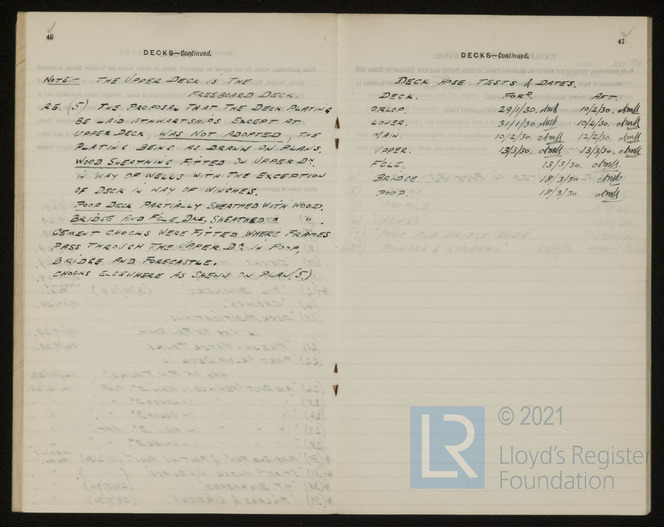 46
DECKS—Continued.
NOTE:- THE UPPER DECK IS THE
FREEBOARD DECK.
RE. (5) THE PROPOSAL THAT THE DECK PLATING
BE LAID ATHWARTSHIPS EXCEPT AT
UPPER DECK, WAS NOT ADOPTED, THE
PLATING BEING AS DRAWN ON PLANS.
WOOD SHEATHING FITTED ON UPPER DK.
IN WAY OF WELLS WITH THE EXCEPTION
OF DECK IN WAY OF WINCHES.
POOP DECK PARTIALLY SHEATHED WITH WOOD.
BRIDGE AND FOLE DKS. SHEATHED " ".
CEMENT CHOCKS WERE FITTED WHERE FRAMES
PASS THROUGH THE UPPER DK IN POOP,
BRIDGE AND FORECASTLE.
CHOCKS ELSEWHERE AS SHEWN ON PLAN (5)
47
DECKS—Continued.
DECK HOSE TESTS & DATES.
DECK. FORD. AFT.
ORLOP. 29/1/30. 10/2/30.
LOWER. 31/1/30. 10/2/30.
MAIN. 10/2/30. 12/2/30.
UPPER. 13/3/30. 13/3/30.
FCLE. 13/3/30.
BRIDGE 18/3/30.
POOP. 18/3/30.
LR
© 2021
Lloyd's Register
Foundation